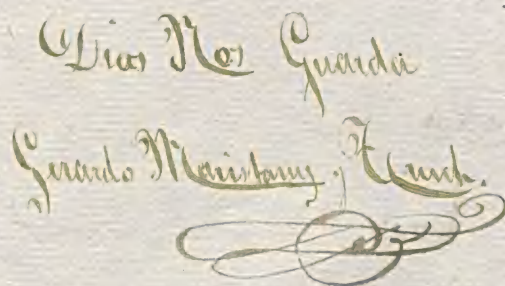 Dios Nos Guarda
Gerardo Maristany y